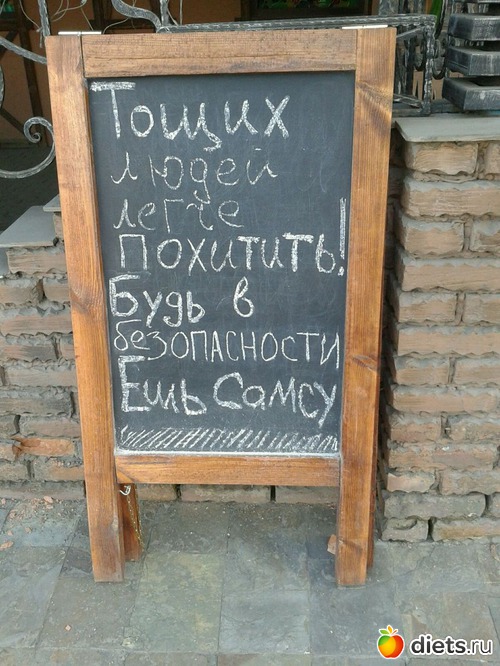 Тощих
людей
легче
похитить!
Будь в
безопасности
Ешь Самсу
diets.ru